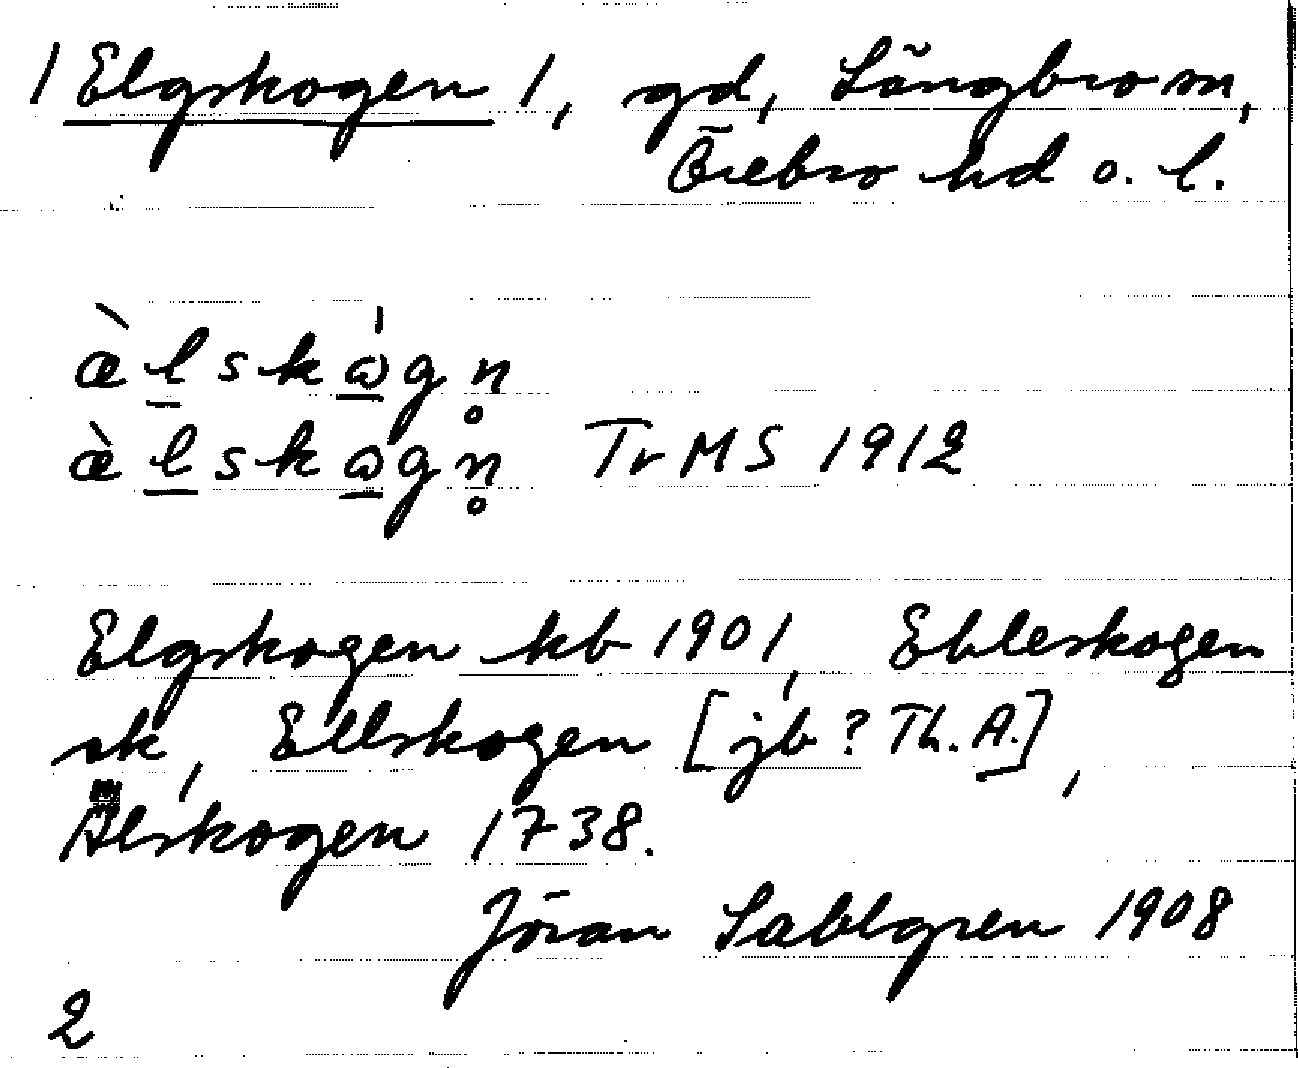 /Elgskogen/, gd, Långbro sn,
Örebro hd o. l.
æ̀lskǫ́gn̥
æ̀lskǫgn̥ Tr MS 1912
Elgskogen kb 1901, Ehleskogen
sk, Ellskogen [jb? Th. A.],
Älskogen 1738.
Jöran Sahlgren 1908
2